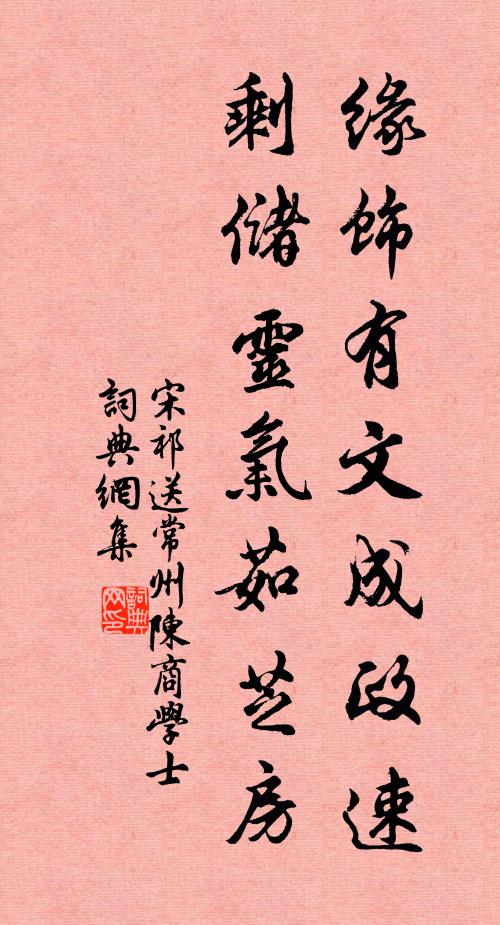 緣飾有文成政速
剩儲靈氣茹芝房
宋祁送常州陳商學士
詞典網集
詞典网印